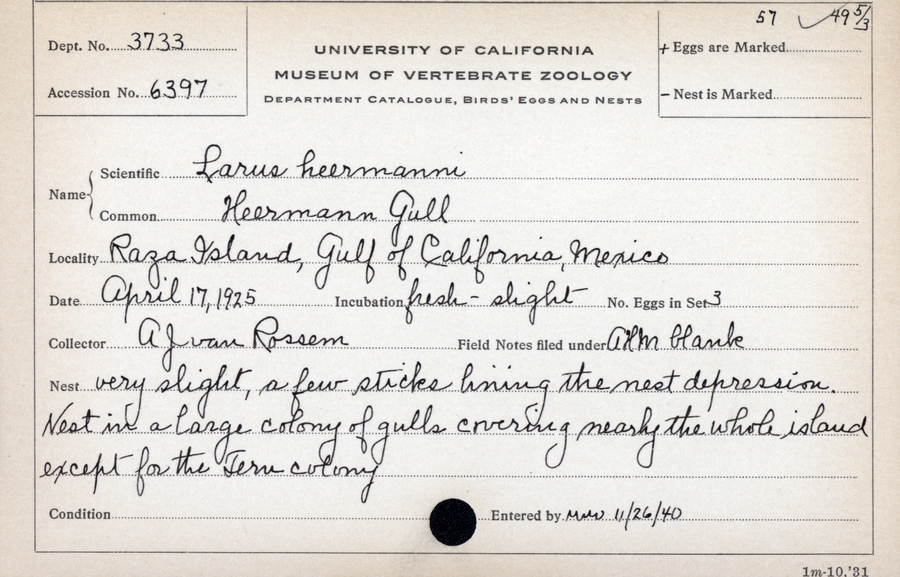 57 ✓ 49 5/3
Dept. No. 3733
UNIVERSITY OF CALIFORNIA
+ Eggs are Marked
MUSEUM OF VERTEBRATE ZOOLOGY
Accession No. 6397
DEPARTMENT CATALOGUE, BIRDS' EGGS AND NESTS
- Nest is Marked
Name { Scientific Larus heermanni
Common Heermann Gull
Locality Raza Island, Gulf of California, Mexico
Date April 17, 1925 Incubation fresh - slight No. Eggs in Set 3
Collector A J van Rossem Field Notes filed under blank
Nest very slight, a few sticks lining the nest depression.
Nest in a large colony of gulls covering nearly the whole island
except for the Tern colony
Condition Entered by 11/26/40
1m-10,'31